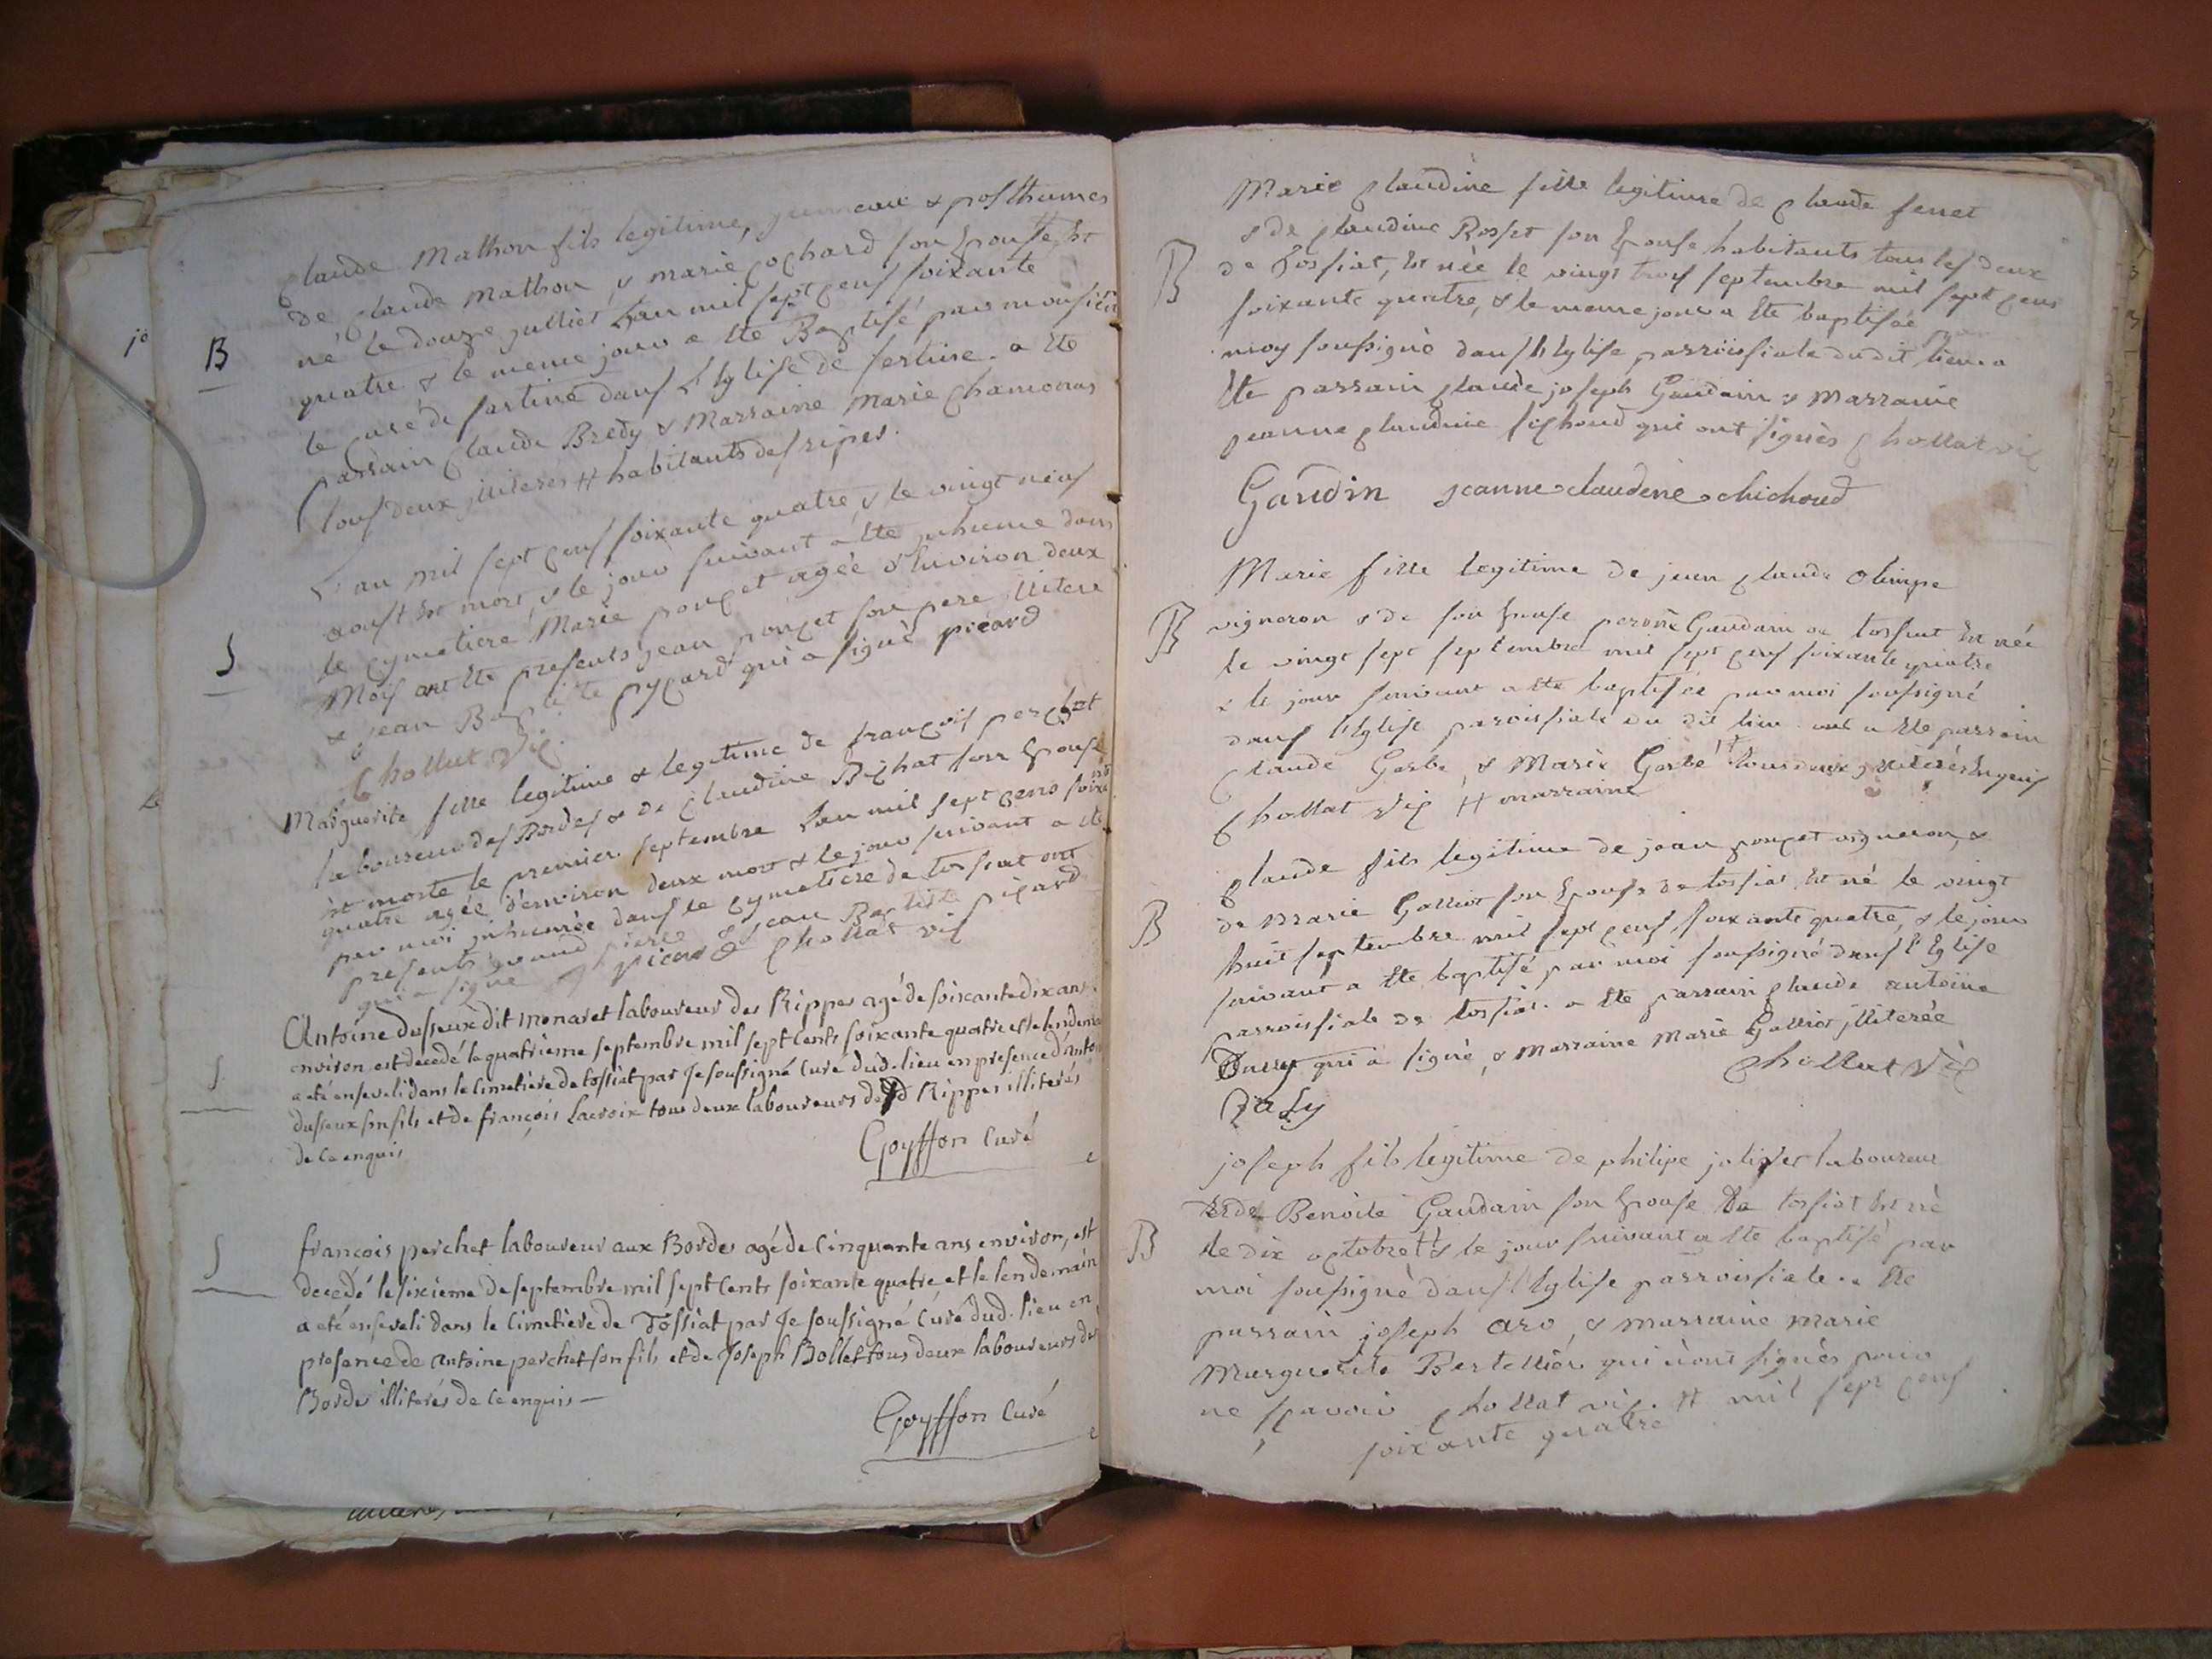 B
Claude Mathon fils legitime, jumeau & posthumes
de Claude Mathon, & marie Cochard son Epouse, Est
né le douze julliet Lan mil sept cens soixante
quatre & le meme jour a Ete Baptisé par monsieur
le Curé de fartine dans L'Eglise de fertine. a Ete
parrain Claude Bredy & Marraine Marie Chamonas
tous deux illiterés # habitants des ripes.
S
L'an mil sept cens soixante quatre, & le vingt neuf
aoust Est mort, & le jour suivant a Ete inhumé dans
le cymetiere Marie ponçet agée d'Environ deux
Mois ont Ete presents jean ponçet son pere illiteré
& jean Baptiste pycard qui a signé picard
Chollat vic
Marguerite fille legitime & legitime de françois perchet
laboureur des Bordes & de Claudine Bichat son Epouse
est morte le premier septembre Lan mil sept cens soixante
quatre agée d'environ deux mois & le jour suivant a ete
par moi inhumée dans le cymetiere de tossiat ont
presents grand pierre & jean Baptiste picard
qui a signé picard Chollat vic
S
Antoine dusseux dit monaret laboureur des Rippes agé de soixante dix ans
environ est decedé le quatrieme septembre mil sept cents soixante quatre et le lendemain
a eté enseveli dans le cimetiere de tossiat par Je soussigné Curé dud. lieu en presence d'Antoine
dusseux son fils et de françois Lacroix tous deux laboureurs desd Rippes illiterés
de ce enquis
Goyffon Curé
S
françois perchet laboureur aux Bordes agé de cinquante ans environ, est
decedé le sixieme de septembre mil sept cents soixante quatre, et le lendemain
a eté enseveli dans le cimetiere de Tossiat par Je soussigné Curé dud. lieu en
presence de Antoine perchet son fils et de Joseph Bollet tous deux laboureurs des
Bordes illiterés de ce enquis —
Goyffon Curé
B
Marie Claudine fille legitime de Claude ferret
& de Claudine Rosset son Epouse habitants tous les deux
de tossiat, Est née le vingt trois septembre mil sept cens
soixante quatre, & le meme jour a Ete baptisée par
moy soussigné dans l'Eglise parroissiale du dit lieu. a
Ete parrain Claude joseph Gaudain & Marraine
jeanne Claudine sichoud qui ont signés Chollat vic
Gaudin jeanne claudene chichoud
B
Marie fille legitime de jean Claude olimpe
vigneron & de son Epouse perone Gaudain de tossiat Est née
le vingt sept septembre mil sept cens soixante quatre
& le jour suivant a Ete baptisée par moi soussigné
dans l'Eglise paroissiale du dit lieu. ont a Ete parrain
Claude Gorbe, & Marie Gorbé # tous deux illiterés Enquis
Chollat vic # marraine
B
Claude fils legitime de jean ponçet vigneron, &
de Marie Galliot son Epouse de tossiat Est né le vingt
huit septembre mil sept cens soixante quatre, & le jour
suivant a Ete baptisé par moi soussigné dans l'Eglise
parroissiale de tossiat. a Ete parrain Claude antoine
qui a signé, & Marraine Marie Galliot illiterée
Chollat vic
B
joseph fils legitime de philipe laboureur
Et de Benoite Gaudain son Epouse de tossiat Est né
le dix octobre # & le jour suivant a Ete baptisé par
moi soussigné dans l'Eglise parroissiale. a Ete
parrain joseph aro, & marraine marie
Marguerite Bertellier qui n'ont signés pour
ne sçavoir Chollat vic. # mil sept cens
soixante quatre